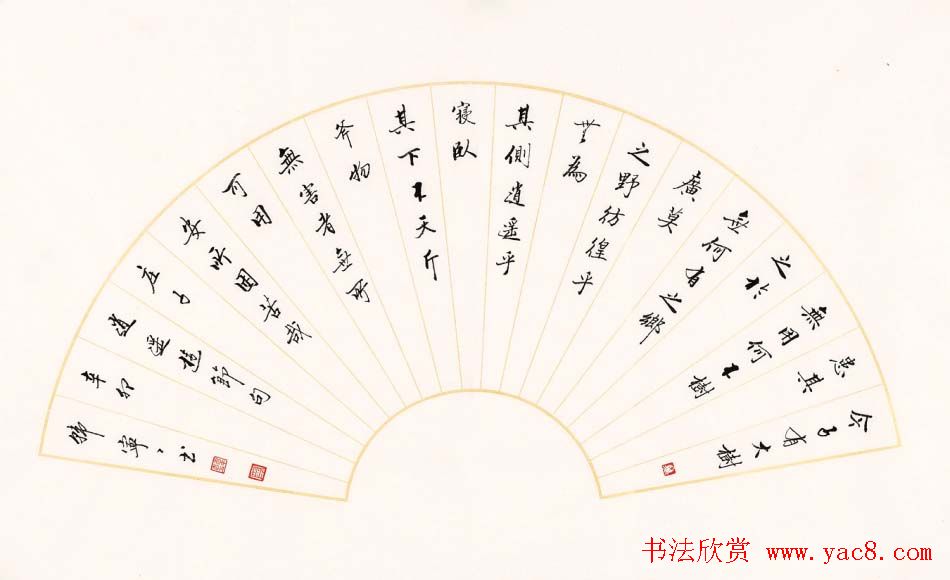 今子有大樹
患其
無用何不樹
之於
無何有之鄉
廣莫
之野彷徨乎
無為
其側逍遥乎
寝臥
其下不夭斤
斧物
無害者無所
可用
安所困苦哉
庄子
逍遥遊節句
辛卯
寧〻书
书法欣赏 www.yac8.com